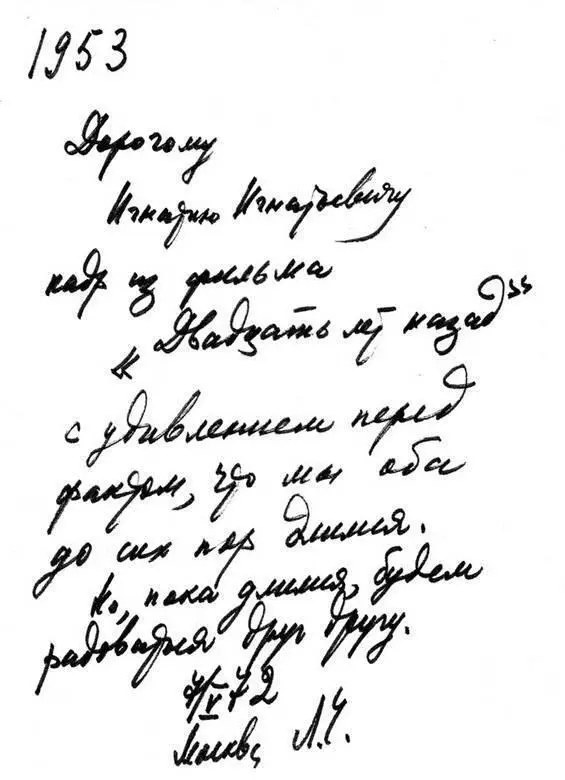 1953
Дорогому
Игнатию Игнатьевичу
кадр из фильма
« Двадцать лет назад»
с удивлением перед
фактом, что мы оба
до сих пор длимся.
Но, пока длимся, будем
радоваться друг другу.
7/V 72
Москва Л.Ч.